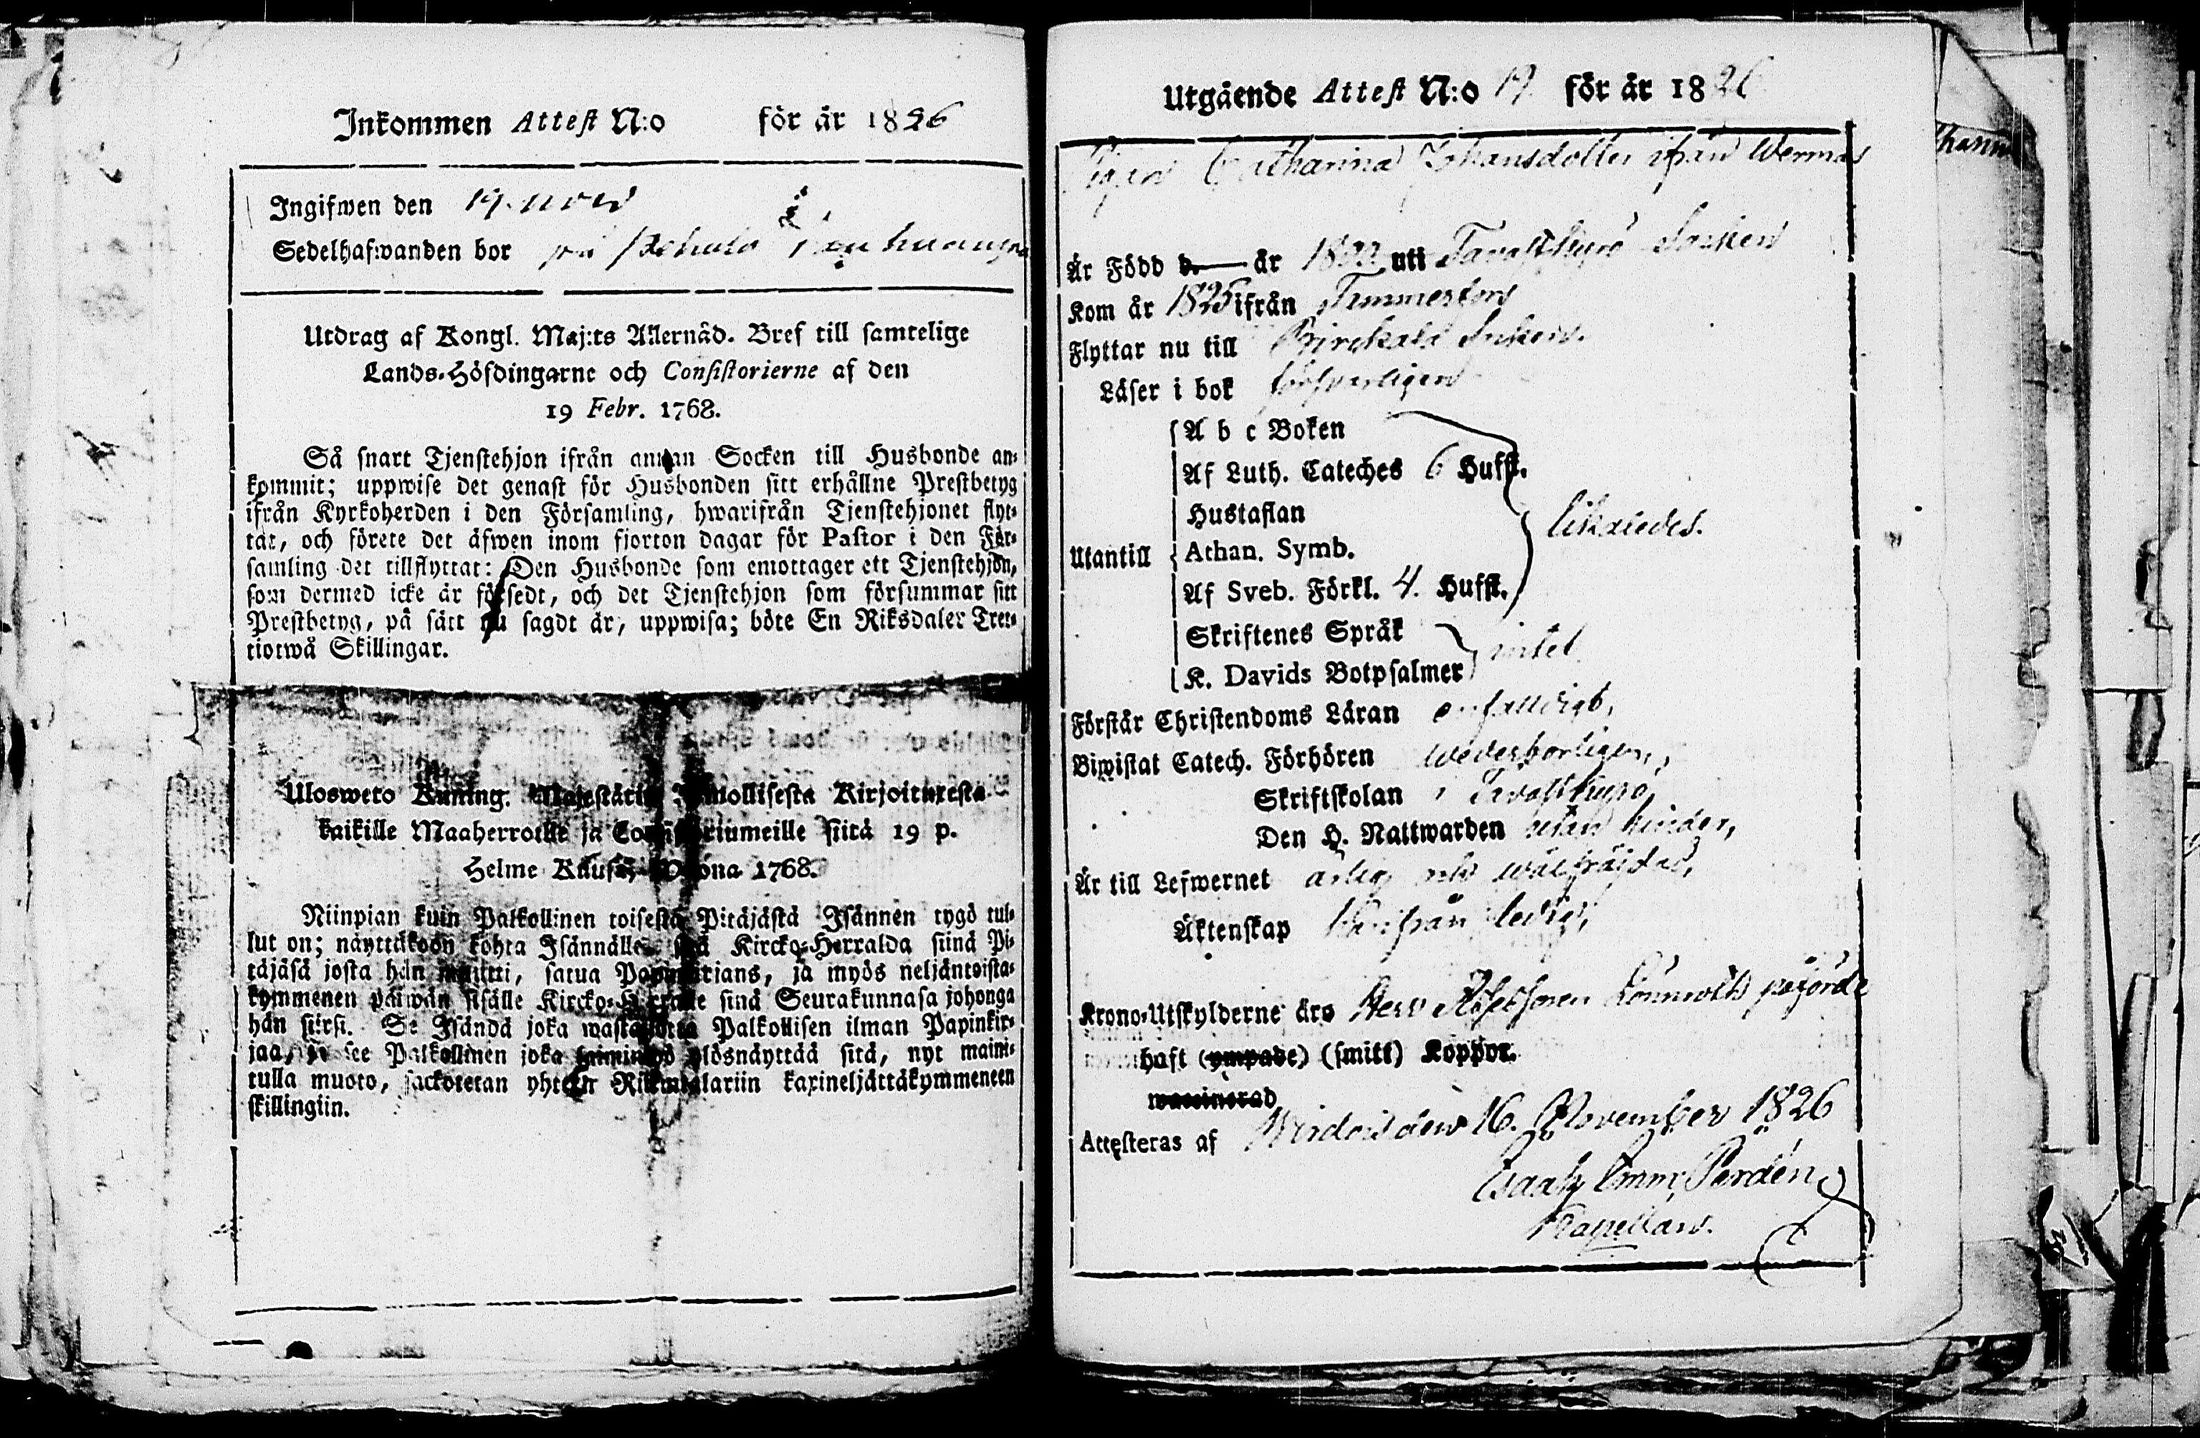 Inkommen Attest N:o för år 1826
Ingifwen den 19. nov
Sedelhafwanden bor på
Utdrag af Kongl. Maj:ts Allernåd. Bref till samtelige
Lands-Höfdingarne och Consistorierne af den
19 Febr. 1768.
Så snart Tjenstehjon ifrån annan Socken till Husbonde an-
kommit; uppwise det genast för Husbonden sitt erhållne Prestbetyg
ifrån Kyrkoherden i den Församling, hwarifrån Tjenstehjonet flyt-
tat, och förete det äfwen inom fjorton dagar för Pastor i den För-
samling det tillflyttat: Den Husbonde som emottager ett Tjenstehjon,
som dermed icke är försedt, och det Tjenstehjon som försummar sitt
Prestbetyg, på sätt nu sagdt är, uppwisa; böte En Riksdaler Tret-
tiotwå Skillingar.
Ulosweto Kuning. Majestätin Armollisesta Kirjoituxesta
kaikille Maaherroille ja Consistoriumeille siitä 19 p.
Helme Kuusa, Wuonna 1768.
Niinpian kuin Palkollinen toisesta Pitäjästä Isännen tygö tul-
lut on; näyttäköön kohta Isännälle sitä Kircko-Herralda siinä Pi-
täjäsä josta hän muutti, satua Papinkirjans, ja myös neljäntoista-
kymmenen päiwän sisälle Kircko-Herralle sinä Seurakunnasa johonga
hän siirsi. Se Isändä joka wastaanotta Palkollisen ilman Papinkir-
jaa, ja see Palkollinen joka laiminlyö ylösnäyttää sitä, nyt maini-
tulla muoto, sackotetan yhteen Rikintalariin kaxineljättäkymmeneen
skillingiin.
Utgående Attest N:o 19 för år 1826
Pigan Catharina Johansdotter ifrån Wermas
Är Född d. år 1802 uti Tavastkyro Socken
Kom år 1825 ifrån Tammerfors
Flyttar nu till Birckala Socken.
Läser i bok försvarligen
A b c Boken
Af Luth. Cateches 6 Hufst.
Hustaflan
likaledes.
Utantill Athan. Symb.
Af Sveb. Förkl. 4. Hufst.
Skriftenes Språk
intet
K. Davids Botpsalmer
Förstår Christendoms Läran enfaldigt,
Biwistat Catech. Förhören wederborligen,
Skriftskolan i Tavastkyro,
Den H. Nattwarden utan hinder,
Är till Lefwernet ärlig och wälfräjdad,
Äktenskap härifrån ledig,
Krono-Utskylderne äro Herr Assessoren Lönnroth påförde
haft (ympade) (smitt) Koppor.
waccinerad
Attesteras af Wirdois den 16. November 1826
Isaak Emm. Perdén
Kapellan.